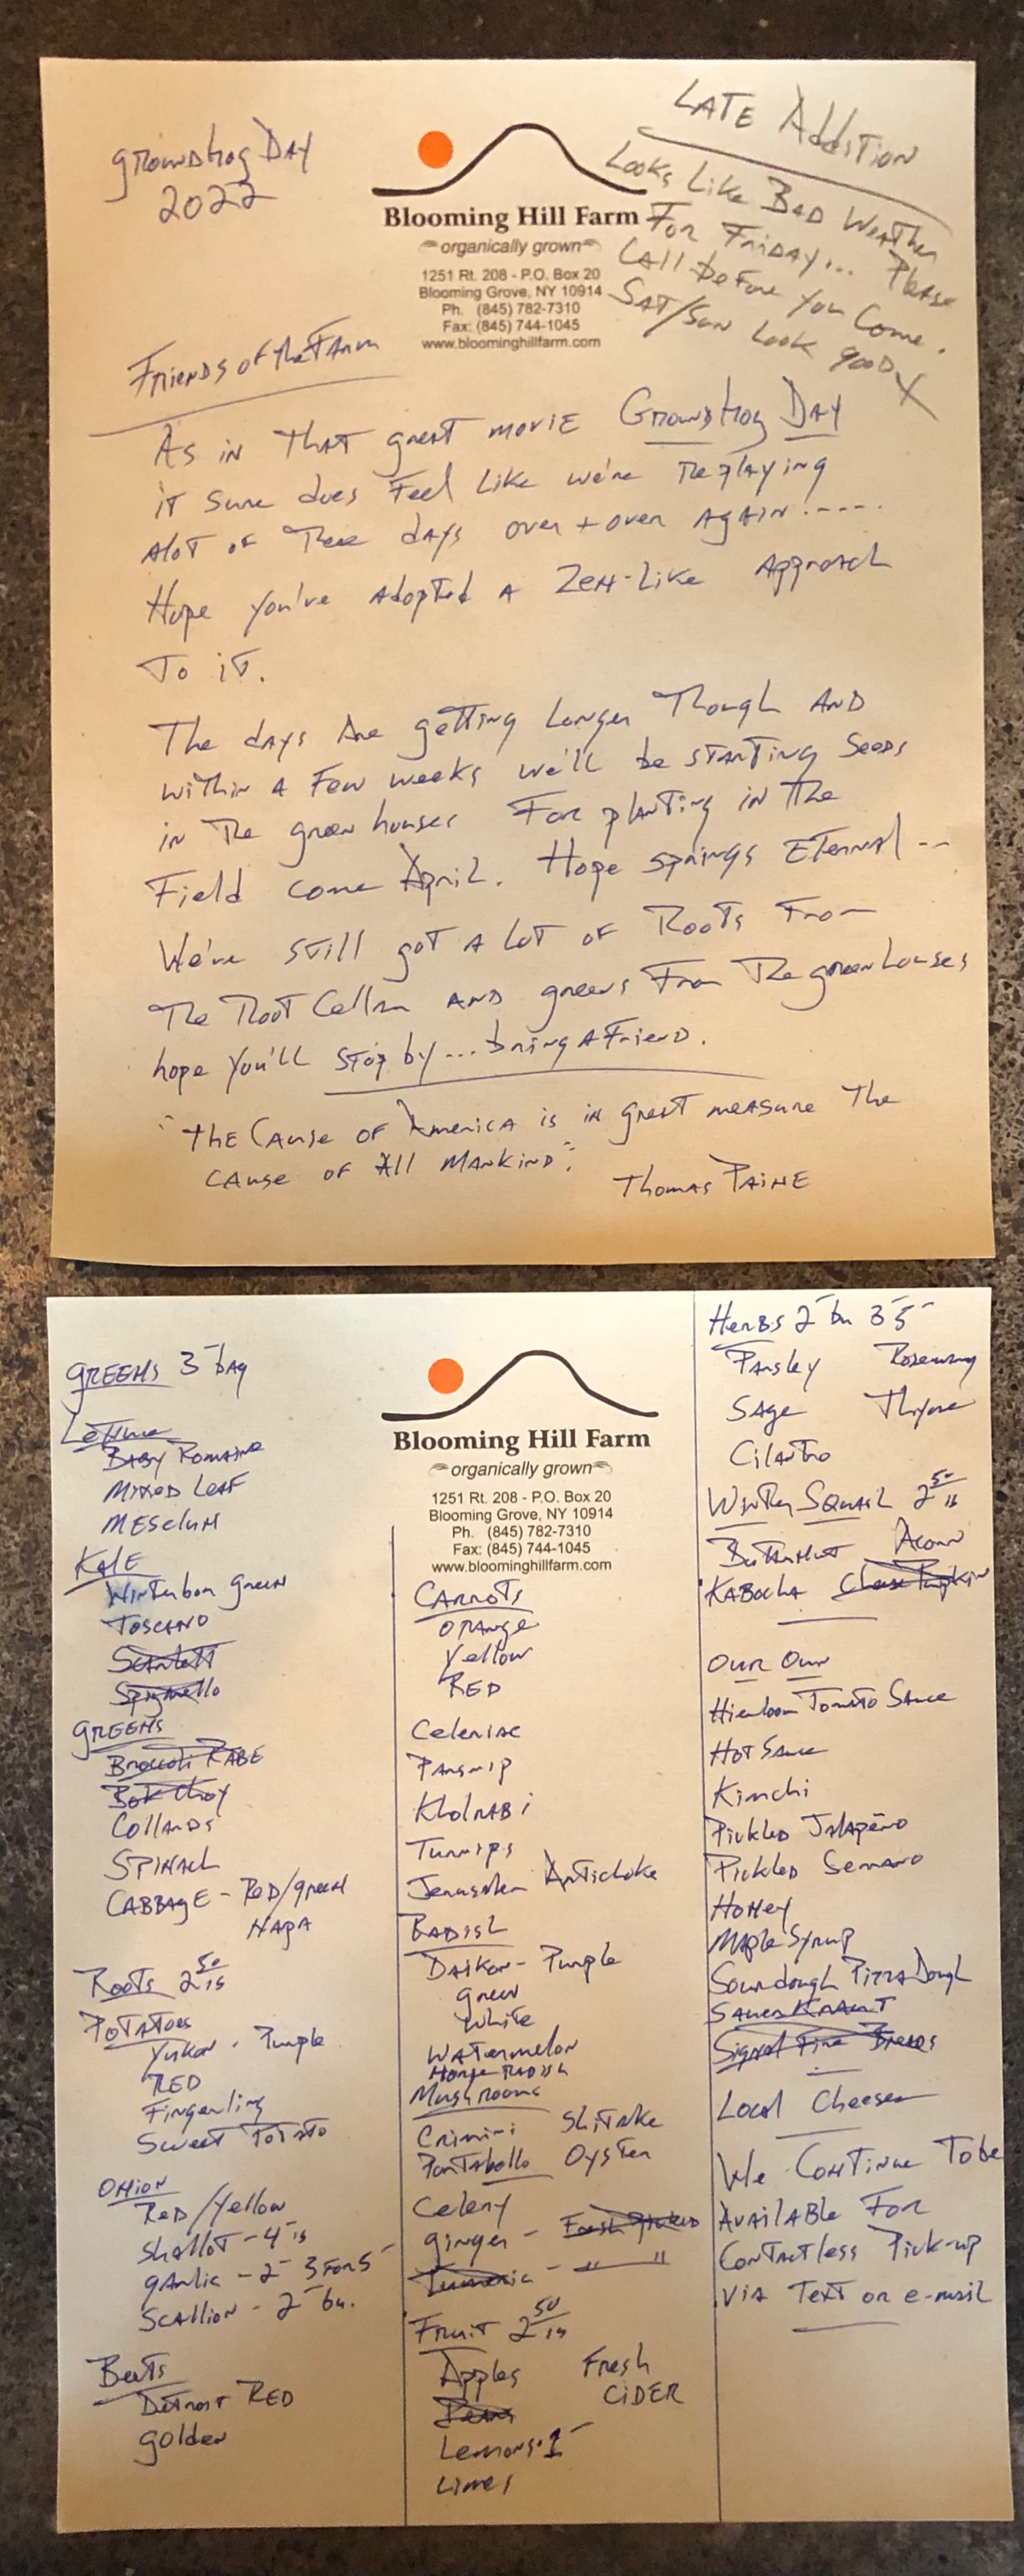 Groundhog Day
2022
Blooming Hill Farm
organically grown
1251 Rt. 208 - P.O. Box 20
Blooming Grove, NY 10914
Ph. (845) 782-7310
Fax: (845) 744-1045
www.bloominghillfarm.com
LATE Addition
Looks Like BAD Weather
For Friday... Please
Call before you Come.
SAT/Sun Look good
Friends of the Farm
As in that great movie Groundhog Day
it sure does Feel Like we're Replaying
Alot of These days over + over Again.....
Hope you've Adopted A Zen-Like Approach
To it.
The days Are getting Longer Though AND
within A Few weeks we'll be starting Seeds
in The greenhouses For planting in the
Field come April. Hope springs Eternal --
We've still got A lot of Roots From
The Root Cellar AND greens From The greenhouses
hope you'll stop by... bring A Friend.
"The Cause of America is in great measure The
cause of All Mankind".
Thomas PAINE
GREENS 3- bag
Lettuce
Baby Romaine
Mixed Leaf
Mesclun
KALE
Winterbor Green
Toscano
Scarlett
Spigarello
GREENS
Broccoli RABE
Bok Choy
Collards
SPINACH
CABBAGE - Red/green
NAPA
Roots 2 50 lb
Potatoes
Yukon - Purple
RED
Fingerling
Sweet Potato
Onion
Red/Yellow
Shallot - 4- lb
garlic - 2- 3 for 5-
Scallion - 2- bu.
Beets
Detroit RED
golden
Blooming Hill Farm
organically grown
1251 Rt. 208 - P.O. Box 20
Blooming Grove, NY 10914
Ph. (845) 782-7310
Fax: (845) 744-1045
www.bloominghillfarm.com
Carrots
Orange
Yellow
RED
Celeriac
Parsnip
Kholrabi
Turnips
Jerusalem Artichoke
Radish
Daikon - Purple
green
White
Watermelon
Horse Radish
Mushrooms
Crimini Shitake
Portabello Oyster
Celery
ginger - Fresh
Tumeric - " "
Fruit 2 50 lb
Apples Fresh
CIDER
Pears
Lemons - 1-
Limes
Herbs 2- bu 3 5-
Parsley Rosemary
Sage Thyme
Cilantro
Winter Squash 2 50 lb
Butternut Acorn
Kabocha Cheese Pumpkin
OUR Own
Hierloom Tomato Sauce
Hot Sauce
Kimchi
Pickled Jalapeño
Pickled Serrano
Honey
Maple Syrup
Sourdough Pizza Dough
Sauer Kraut
Signal Fire Breads
Local Cheeses
We Continue To be
Available For
Contactless Pick-up
VIA Text or e-mail